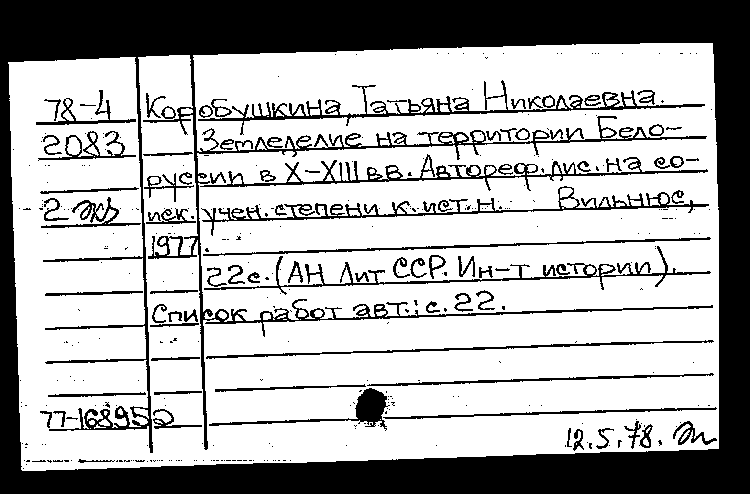 78-4 Коробушкина, Татьяна Николаевна.
2083 Земледелие на территории Бело-
руссии в X-XIII вв. Автореф. дис. на со-
2 экз иск. учен. степени к. ист. н. Вильнюс,
1977.
22с. (АН Лит ССР. Ин-т истории).
Список работ авт.: с. 22.
77-16895
12.5.78.